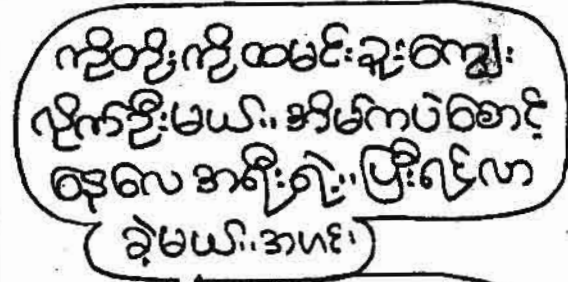 ကိုတိုးကို ထမင်းခူးကျွေး
လိုက်ဦးမယ်။ အိမ်ကပဲစောင့်
နေလေ အရီးရဲ့။ ပြီးရင်လာ
ခဲ့မယ်။ အဟင်း